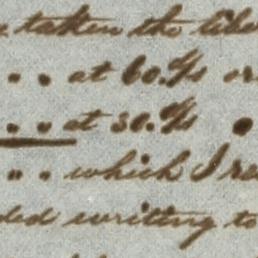 taken the libe
" " at 60.%s or
" " at 30.%s
" " which I re
ded writing to